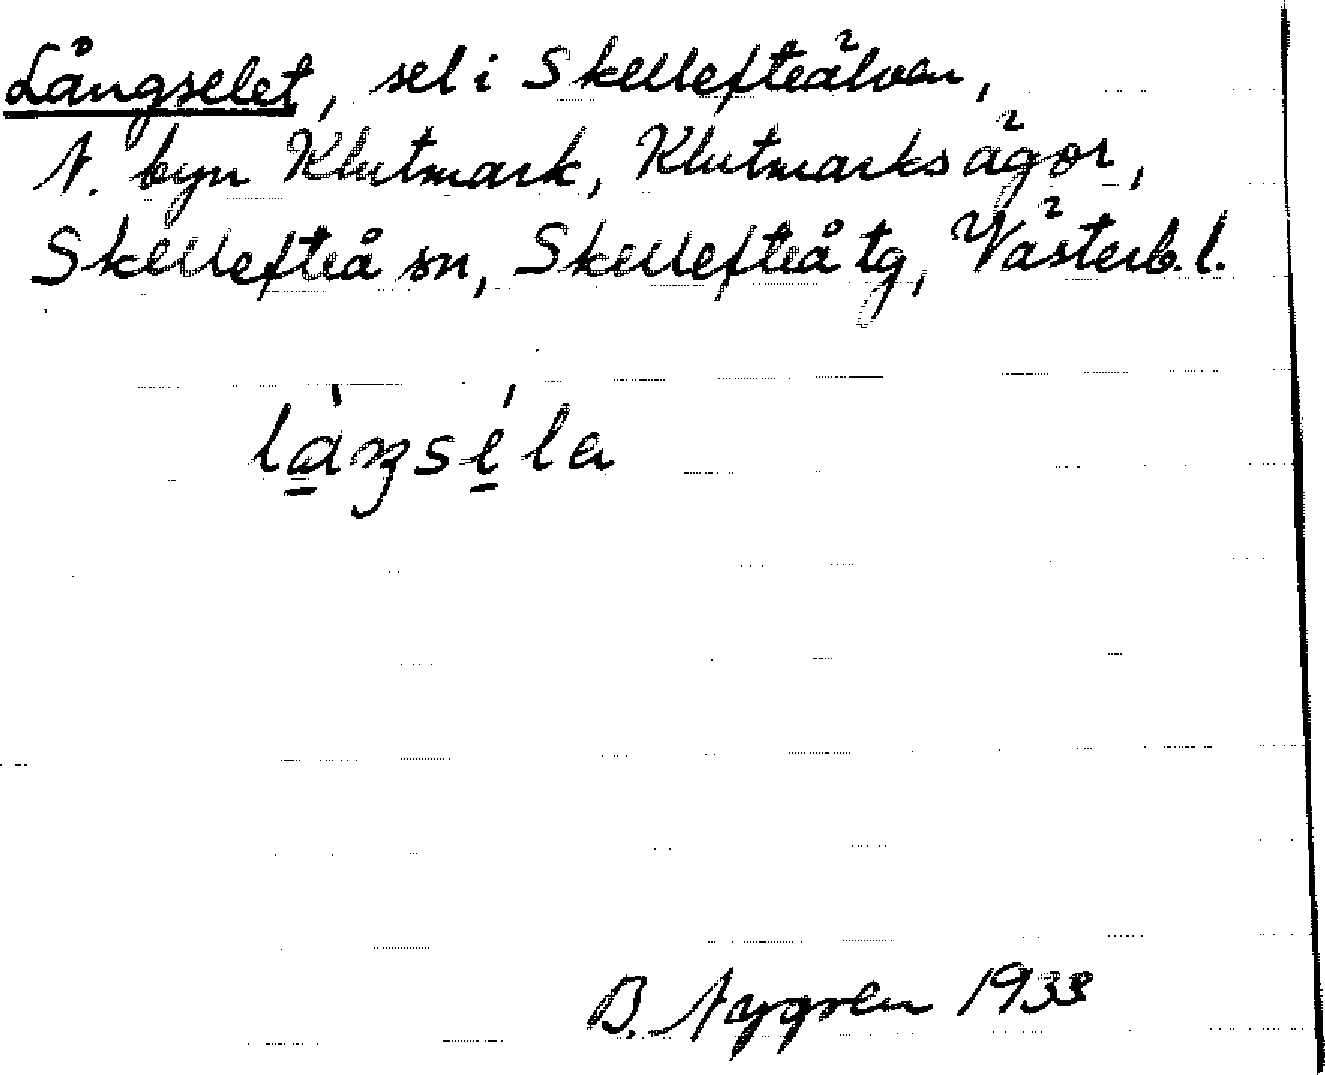 Långselet, sel i Skellefteälven,
N. byn Klutmark, Klutmarks ägor,
Skellefteå sn, Skellefteå tg, Västerb. l.
B. Nygren 1933